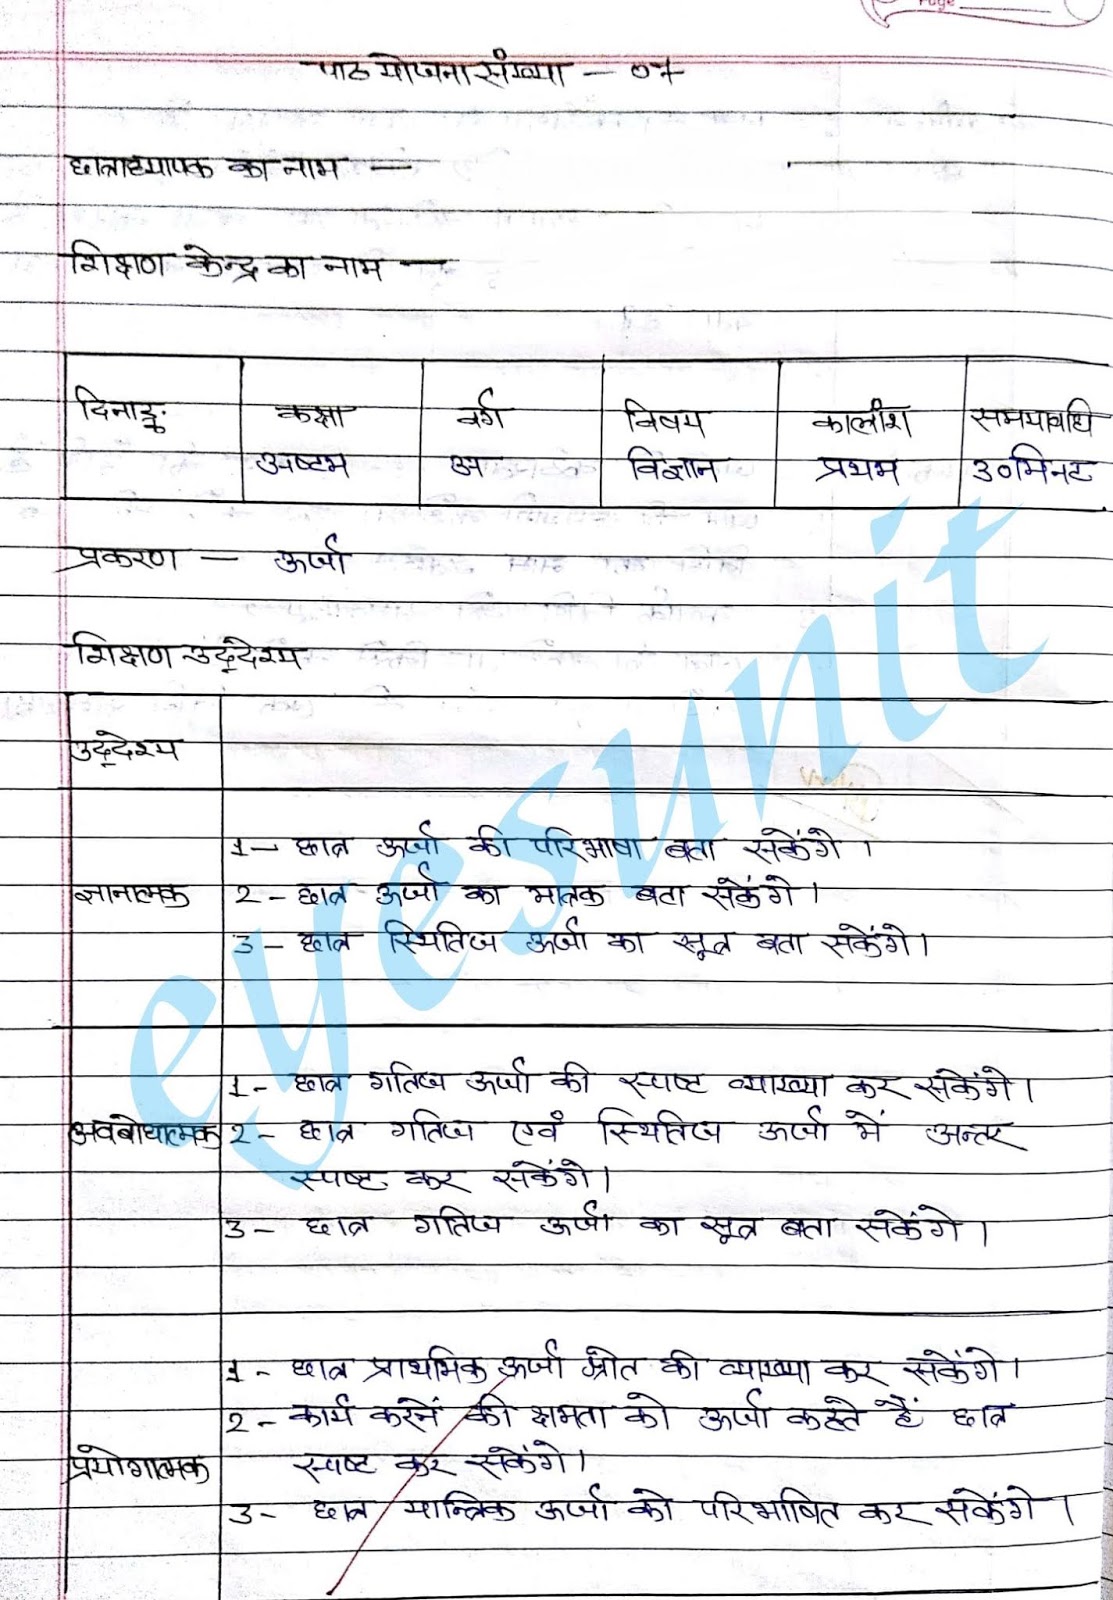 Page
पाठ योजना संख्या — 07
छात्राध्यापक का नाम —
शिक्षण केन्द्र का नाम —
दिनाङ्क: कक्षा वर्ग विषय कालांश समयावधि
अष्टम अ विज्ञान प्रथम 30मिनट
प्रकरण — ऊर्जा
शिक्षण उद्देश्य
उद्देश्य
1- छात्र ऊर्जा की परिभाषा बता सकेंगे।
ज्ञानात्मक 2- छात्र ऊर्जा का मात्रक बता सकेंगे।
3- छात्र स्थितिज ऊर्जा का सूत्र बता सकेंगे।
1- छात्र गतिज ऊर्जा की स्पष्ट व्याख्या कर सकेंगे।
अवबोधात्मक 2- छात्र गतिज एवं स्थितिज ऊर्जा में अन्तर
स्पष्ट कर सकेंगे।
3- छात्र गतिज ऊर्जा का सूत्र बता सकेंगे।
1- छात्र प्राथमिक ऊर्जा स्रोत की व्याख्या कर सकेंगे।
2- कार्य करनें की क्षमता को ऊर्जा कहते हैं छात्र
प्रयोगात्मक स्पष्ट कर सकेंगे।
3- छात्र यान्त्रिक ऊर्जा को परिभाषित कर सकेंगे।
eyesunit